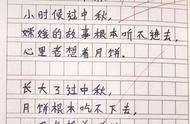 小时候过中秋，
嫦娥的故事根本听不进去，
心里老想着月饼。
长大了过中秋，
月饼根本吃不下去，